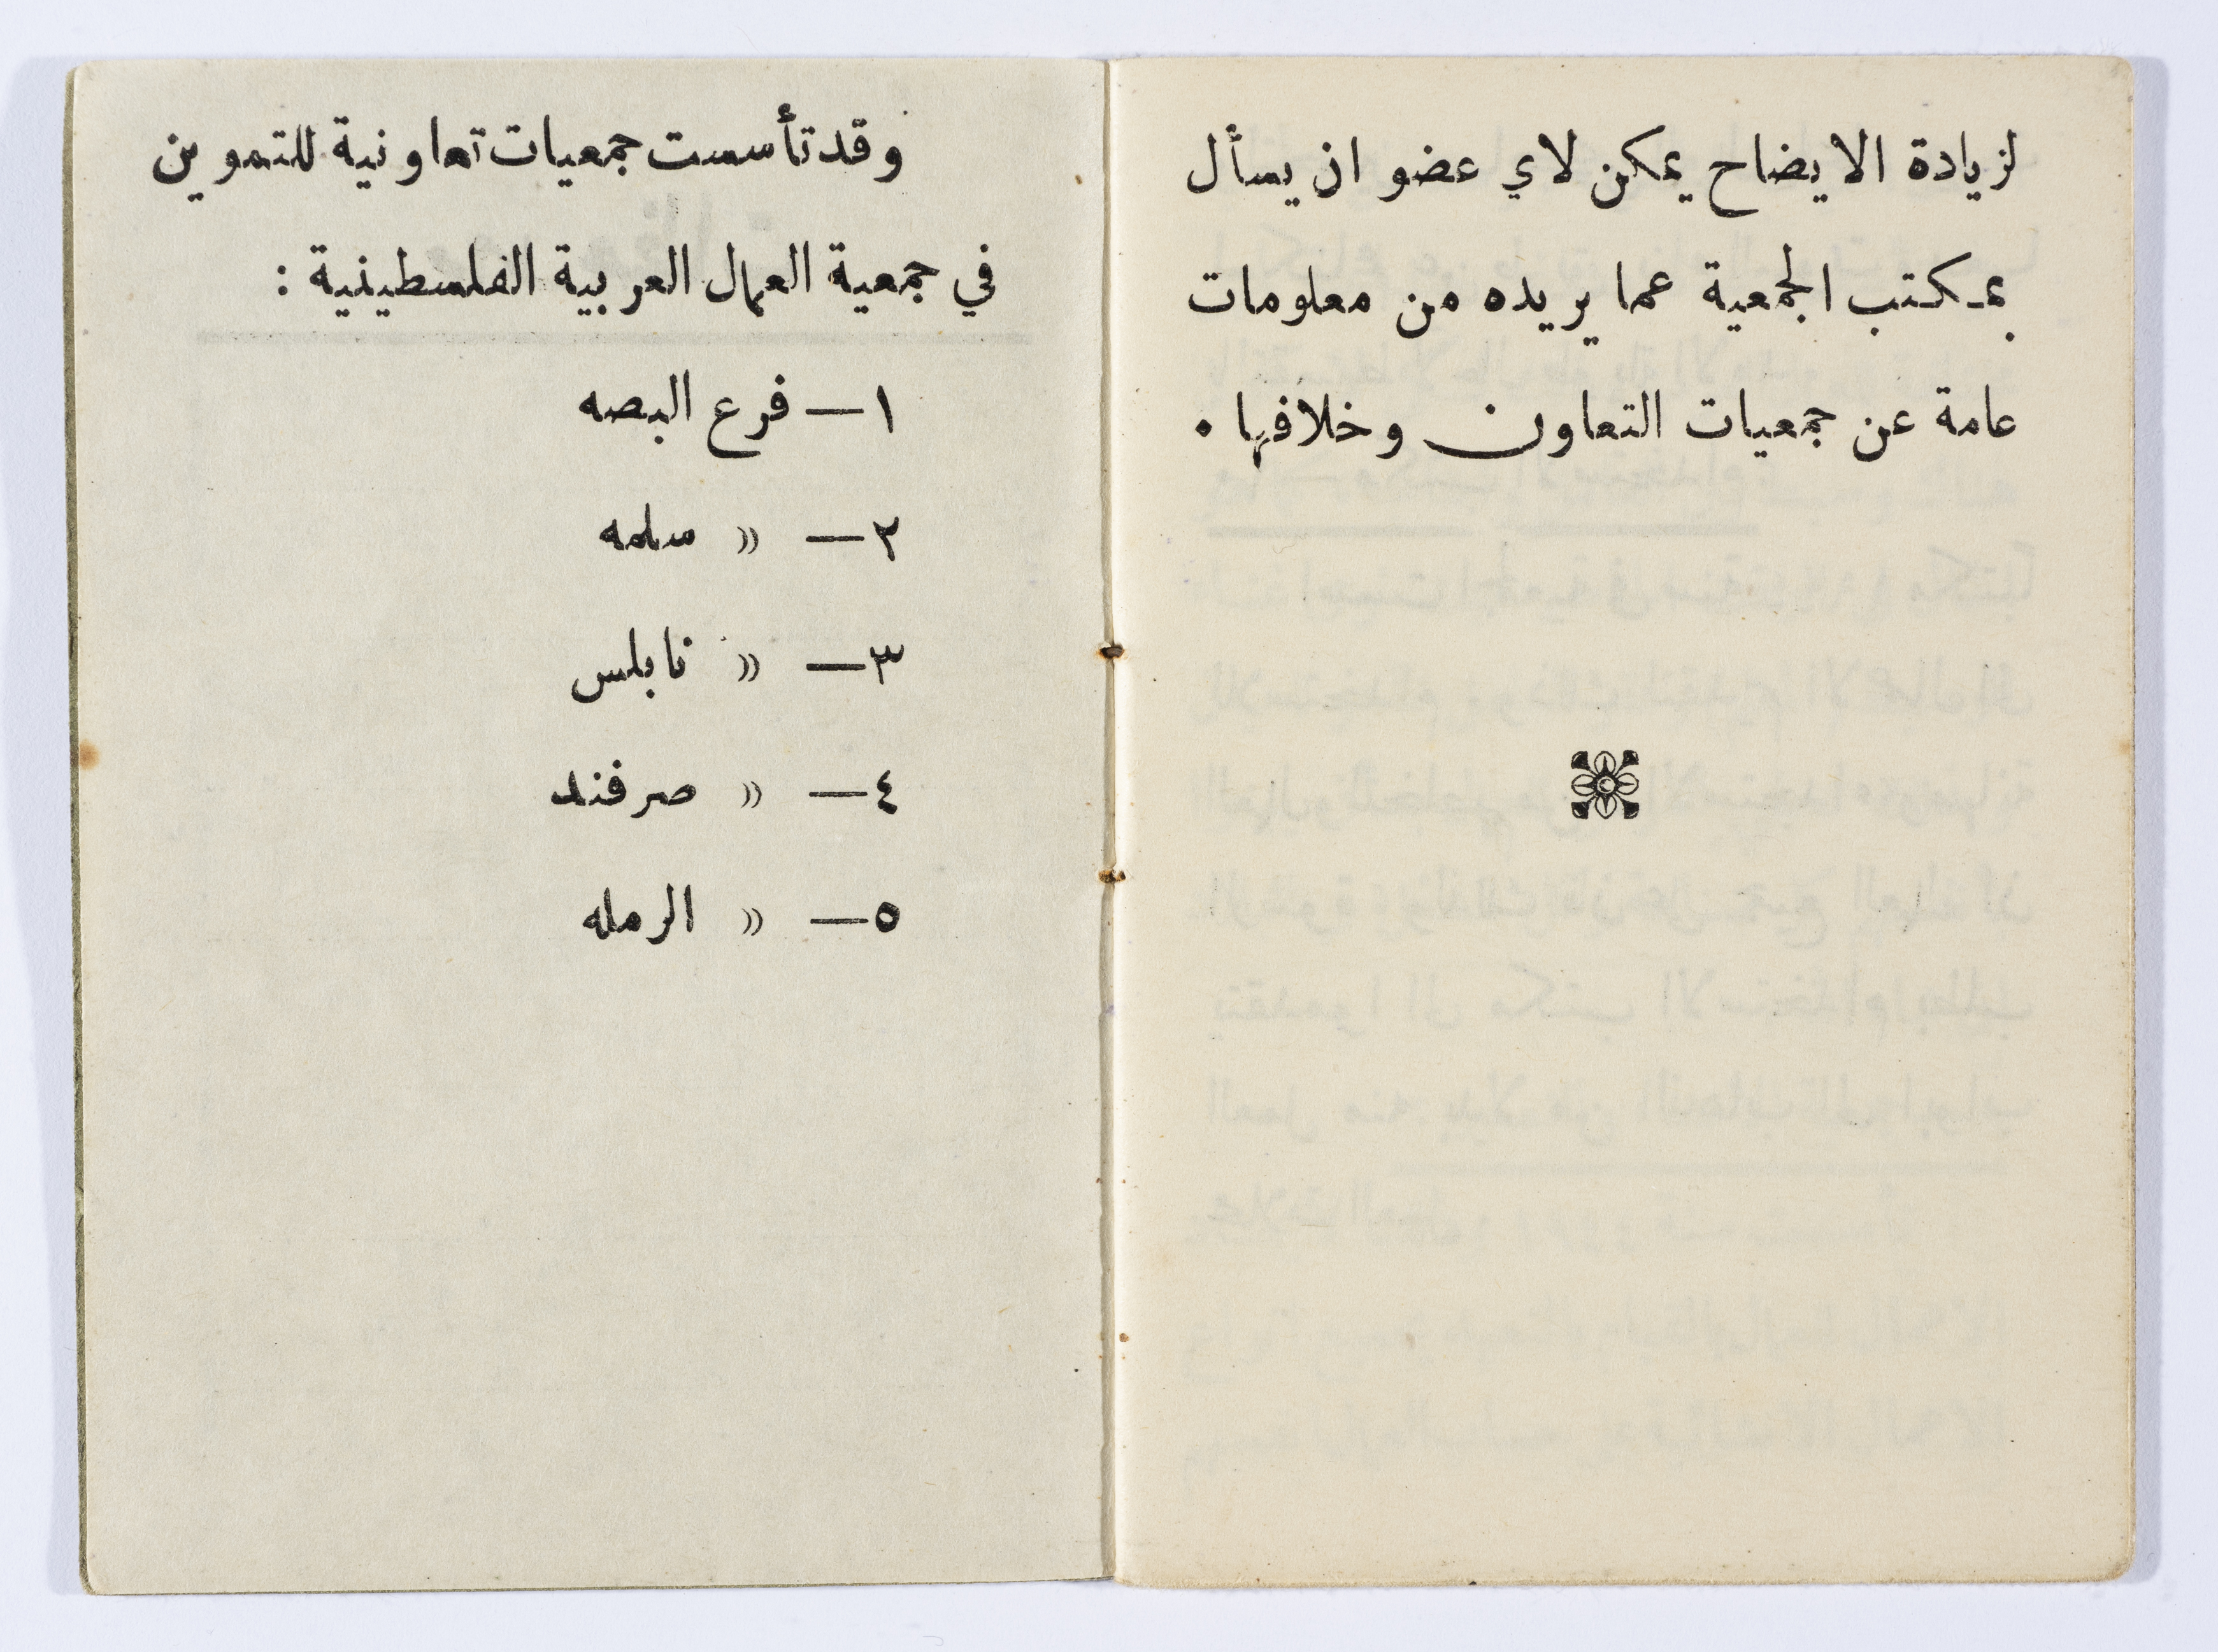 لزيادة الايضاح يمكن لاي عضو ان يسأل
بمكتب الجمعية عما يريده من معلومات
عامة عن جمعيات التعاون وخلافها .
وقد تأسست جمعيات تعاونية للتموين
في جمعية العمال العربية الفلسطينية :
١— فرع البصه
٢— » سلمه
٣— » نابلس
٤— » صرفند
٥— » الرمله